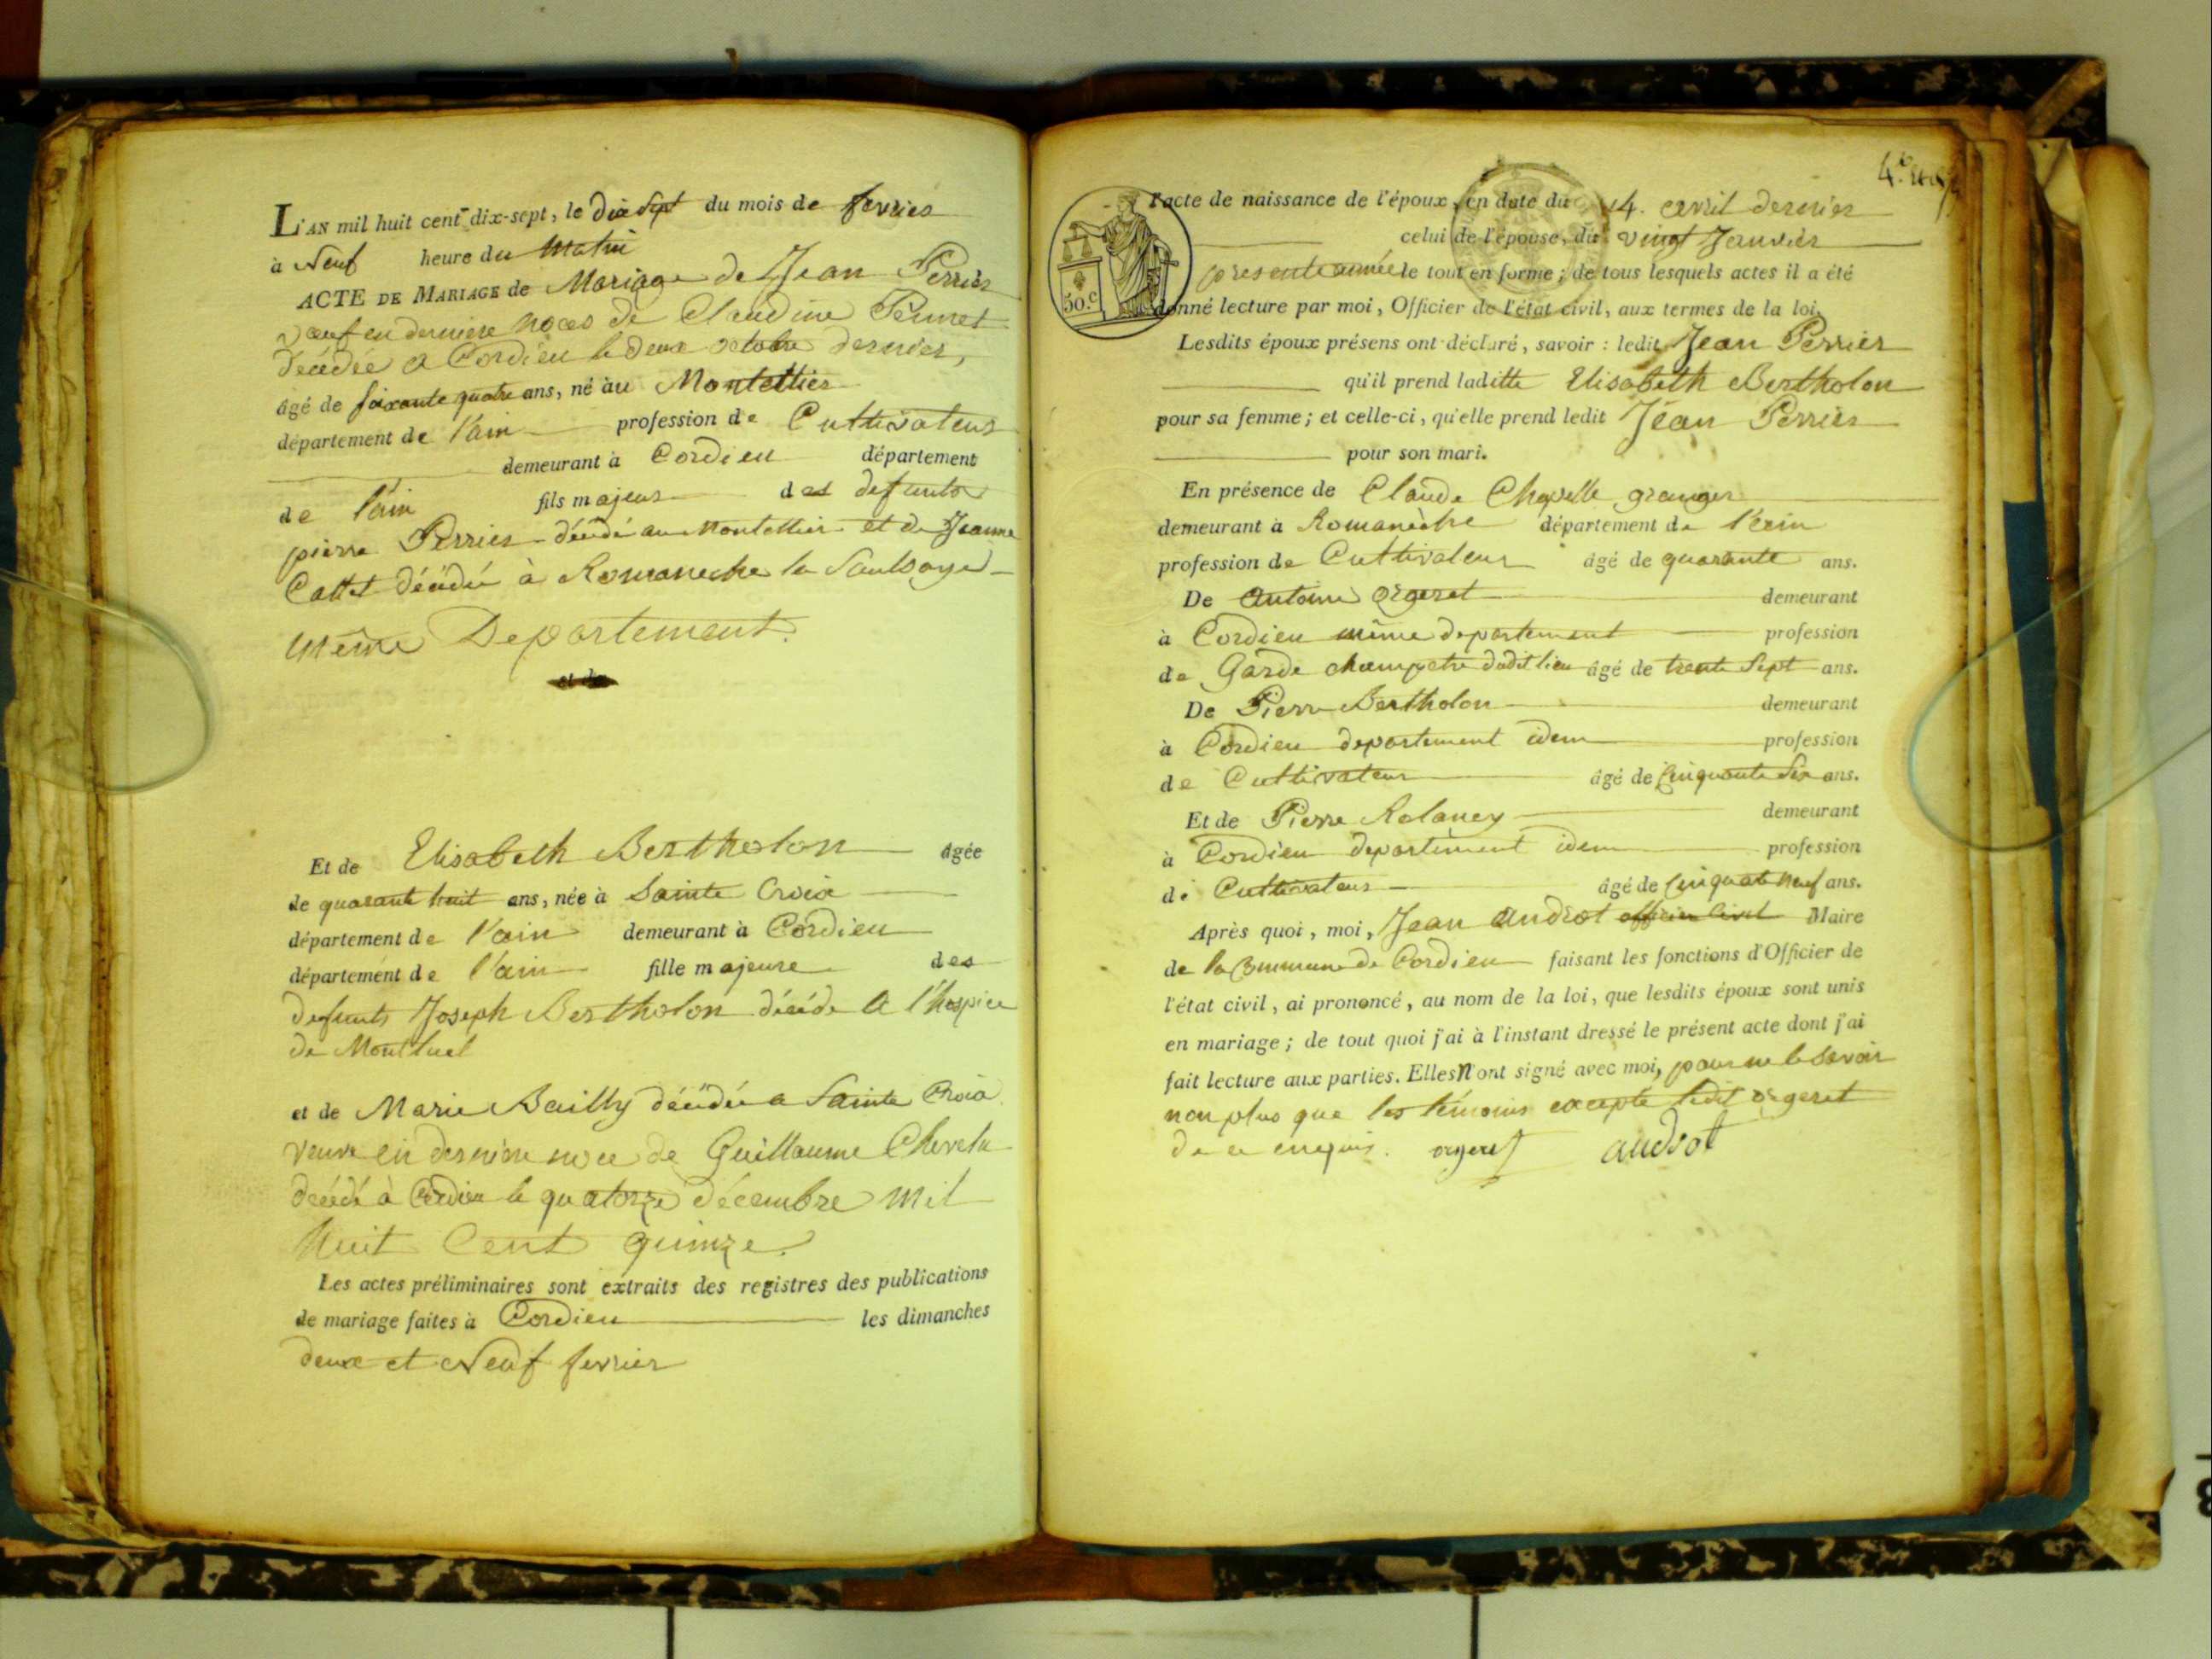 L'AN mil huit cent dix-sept, le dix Sept du mois de fevrier
à Neuf heure du Matin
ACTE DE MARIAGE de Mariage de Jean Perrier
veuf en derniere noces de Claudine Perret
décédée a Cordieu le deux octobre dernier,
âgé de soixante quatre ans, né au Montellier
département de l'ain profession de Cultivateur
demeurant à Cordieu département
de l'ain fils majeur des defunts
pierre Perrier décédé au Montellier et de Jeanne
Cattet décédée à Romaneche la Saulsaye
même Departement.
Et de Elisabeth Bertholon âgée
de quarante huit ans, née à Sainte Croix
département de l'ain demeurant à Cordieu
département de l'ain fille majeure des
defunts Joseph Bertholon décédé a l'hospice
de Montluel
et de Marie Bailly décédée a Sainte Croix
veuve en derniere noce de Guillaume Chevelu
décédé à Cordieu le quatorze décembre mil
huit Cent quinze.
Les actes préliminaires sont extraits des registres des publications
de mariage faites à Cordieu les dimanches
deux et Neuf fevrier
4.e
30.c
l'acte de naissance de l'époux, en date du 14. avril dernier
celui de l'épouse, du vingt Janvier
presente année le tout en forme; de tous lesquels actes il a été
donné lecture par moi, Officier de l'état civil, aux termes de la loi.
Lesdits époux présens ont déclaré, savoir : ledit Jean Perrier
qu'il prend laditte Elisabeth Bertholon
pour sa femme; et celle-ci, qu'elle prend ledit Jean Perrier
pour son mari.
En présence de Claude Chapelle granger
demeurant à Romanèche département de l'ain
profession de Cultivateur âgé de quarante ans.
De Antoine Orgeret demeurant
à Cordieu même departement profession
de Garde champetre dudit lieu âgé de trente Sept ans.
De Pierre Bertholon demeurant
à Cordieu departement idem profession
de Cultivateur âgé de Cinquante Six ans.
Et de Pierre demeurant
à Cordieu departement idem profession
de Cultivateur âgé de Cinquante neuf ans.
Après quoi, moi, Jean Audrot officier civil Maire
de la Commune de Cordieu faisant les fonctions d'Officier de
l'état civil, ai prononcé, au nom de la loi, que lesdits époux sont unis
en mariage; de tout quoi j'ai à l'instant dressé le présent acte dont j'ai
fait lecture aux parties. Elles n'ont signé avec moi, pour ne le Savoir
non plus que les témoins excepté ledit orgeret
de ce enquis. orgeret audrot